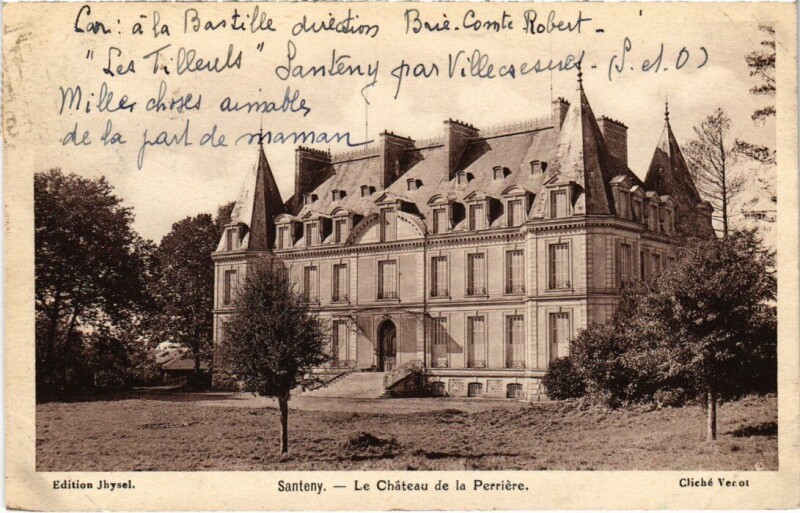 Car: à la Bastille direction Brie-Comte Robert-
"Les Tilleuls" Santeny par Villecresnes - (S. et O)
Mille choses aimables
de la part de maman
Edition Jhysel.
Santeny. — Le Château de la Perrière.
Cliché Verot